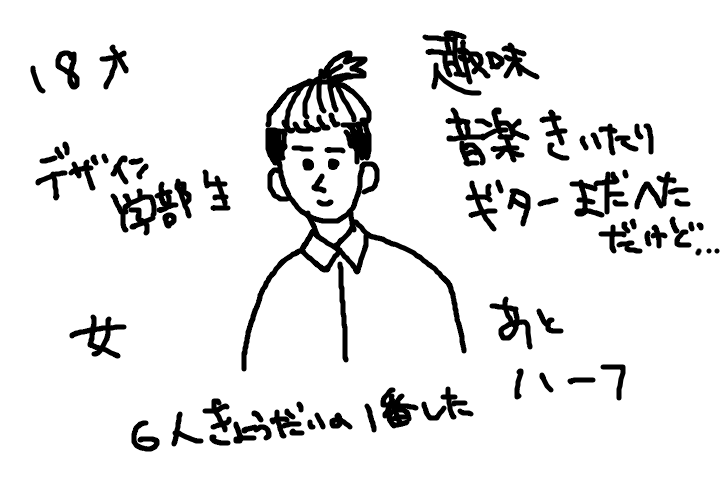 18才
デザイン
学部生
女
趣味
音楽きいたり
ギターまだへた
だけど...
あと
ハーフ
6人きょうだいの1番した